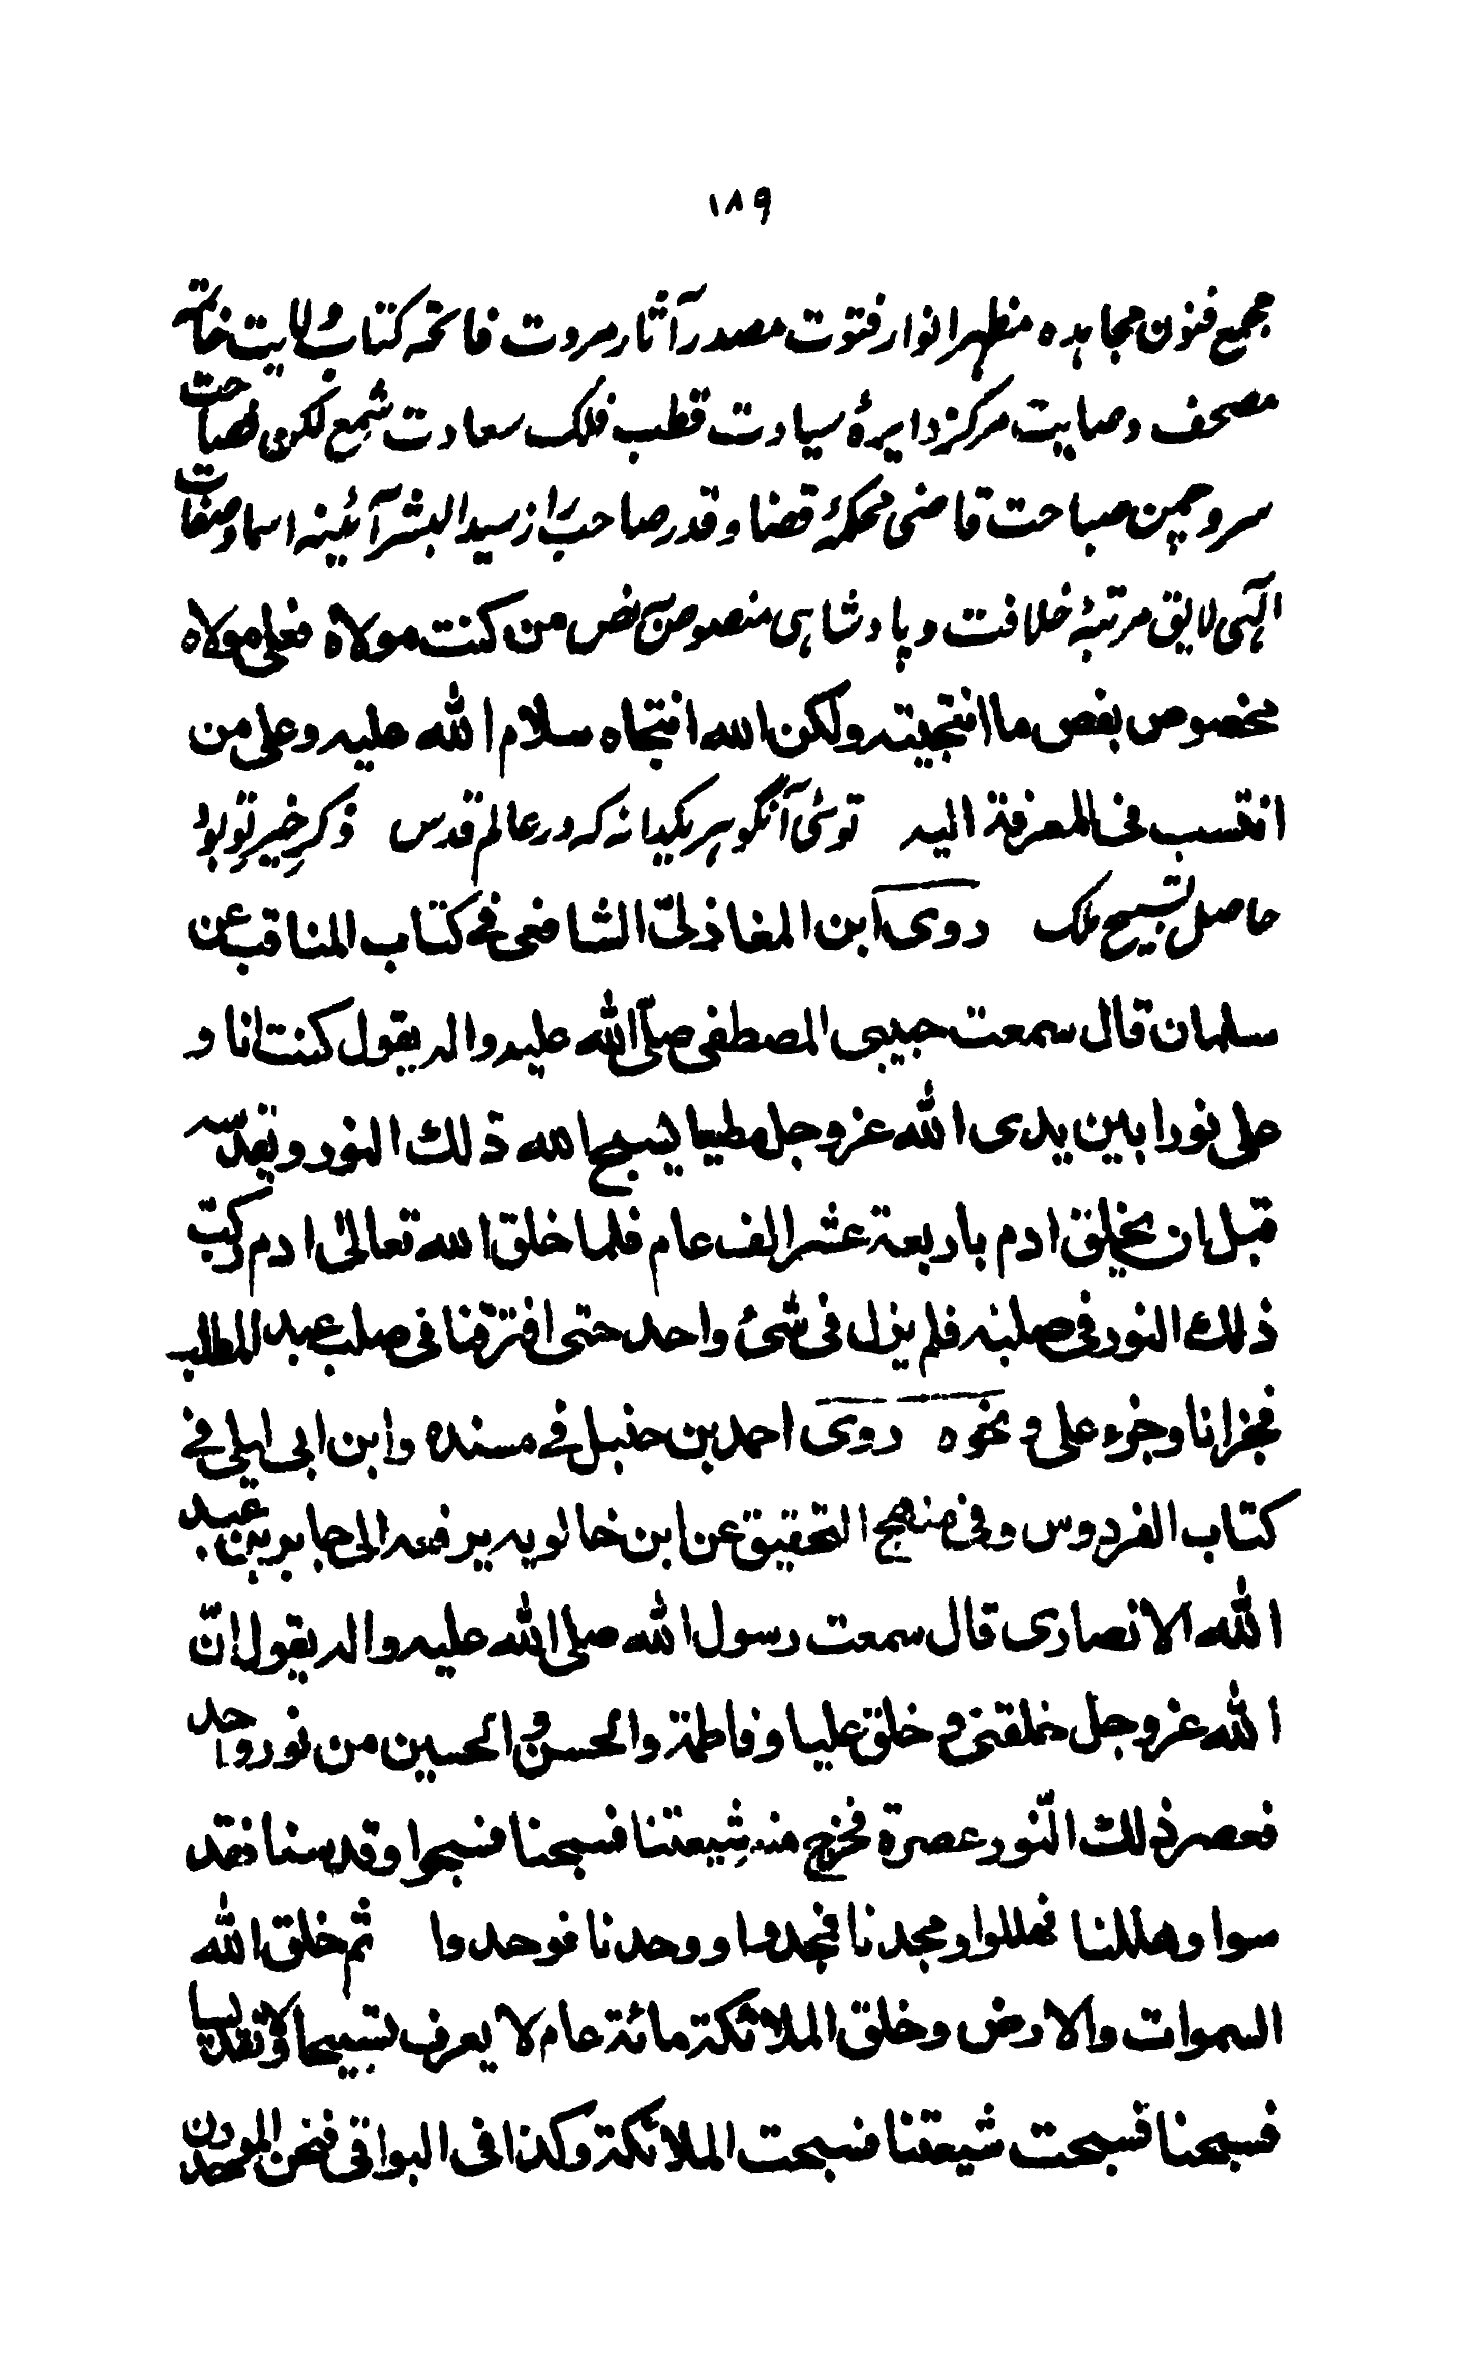 ۱۸۹
مجمع فنون مجاهده مظهر انوار فتوت مصدر آثار مروت فاتحهٔ کتاب ولایت خاتمه
مصحف وصایت مرکز دایرهٔ سیادت قطب فلک سعادت شمع لکن فصاحت
سرو چمن صباحت قاضی محکمهٔ قضا و قدر صاحب راز سید البشر آئینه اسما و صفات
الهی لایق مرتبهٔ خلافت و پادشاهی منصوص نص من کنت مولاه فعلی مولاه
مخصوص بفص ما انتجیته ولکن الله انتجاه سلام الله علیه وعلی من
انتسب فی المعرفة الیه توئی آن گوهر یکدانه که در عالم قدس ذکر خیر تو بود
حاصل تسبیح ملک روی ابن المغاذلیّ الشافعی فی کتاب المناقب عن
سلمان قال سمعت حبیبی المصطفی صلّی الله علیه واله یقول کنت انا و
علی نورا بین یدی الله عز وجل مطیعا یسبح الله ذلک النور ویقدسه
قبل ان یخلق ادم باربعة عشر الف عام فلما خلق الله تعالی ادم رکب
ذلک النور فی صلبه فلم یزل فی شئ واحد حتی افترقنا فی صلب عبد المطلب
فجزء انا وجزء علی و نحوه روی احمد بن حنبل فی مسنده وابن ابی لیلی فی
کتاب الفردوس وفی منهج التحقیق عن ابن خالویه یرفعه الی جابر بن عبد
الله الانصاری قال سمعت رسول الله صلی الله علیه واله یقول انّ
الله عز وجل خلقنی و خلق علیا وفاطمة والحسن و الحسین من نور واحد
فعصر ذلک النّور عصرة فخرج منه شیعتنا فسبحنا فسبحوا وقدسنا فقد
سوا وهللنا فهللوا ومجدنا فمجدوا ووحدنا فوحدوا ثم خلق الله
السموات والارض وخلق الملائکة مائة عام لا یعرف تسبیحا ولا تقدیسا
فسبحنا فسبحت شیعتنا فسبحت الملائکة وکذا فی البواقی فنحن الموحدون